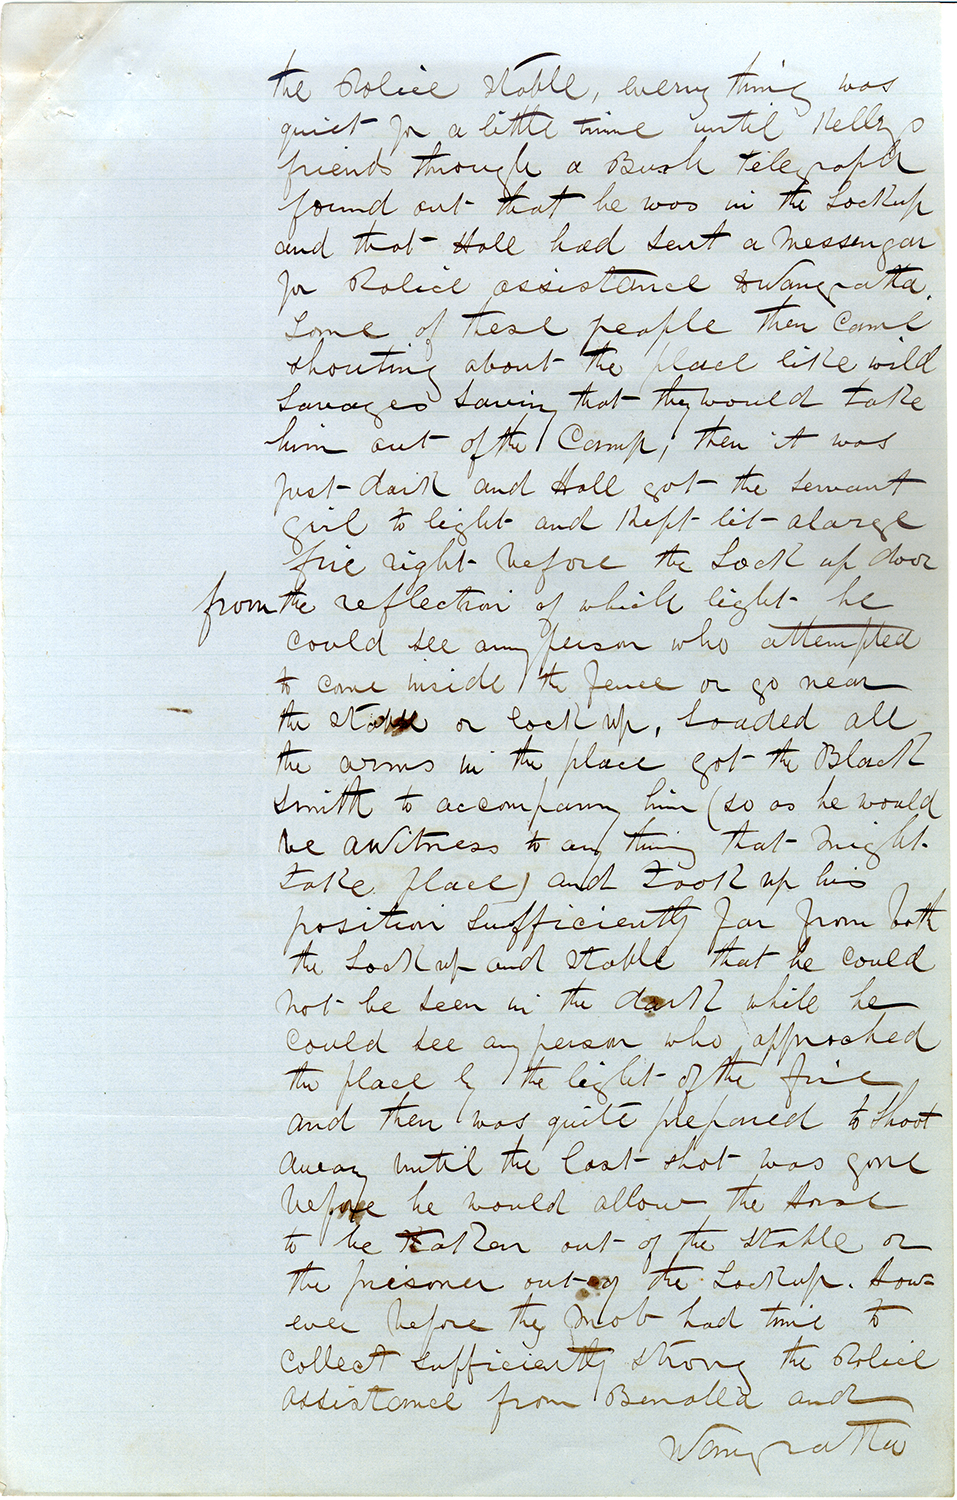 the Police stable, every thing was
quiet for a little time until Kellys
friends through a Bush telegraph
found out that he was in the Lockup
and that Hall had sent a messengar
for Police assistance to Wangratta.
Some of these people then came
shouting about the place like wild
Savages saying that they would take
him out of the Camp, then it was
just dark and Hall got the servant
girl to light and Kept lit a large
fire right before the Lock up door
from the reflection of which light he
could see any person who attempted
to come inside the fence or go near
the stable or lock up, Loaded all
the arms in the place got the Black
smith to accompany him (so as he would
be a Witness to any thing that might
take place) and took up his
position sufficiently far from both
the Lockup and stable that he could
not be seen in the dark while he
could see any person who approched
the place by the light of the fire
and then was quite prepared to shoot
away until the last shot was gone
before he would allow the Horse
to be taken out of the stable or
the prisoner out of the Lockup. How=
ever before the mob had time to
collect sufficiently strong the Police
assistance from Benalla and
Wangratta